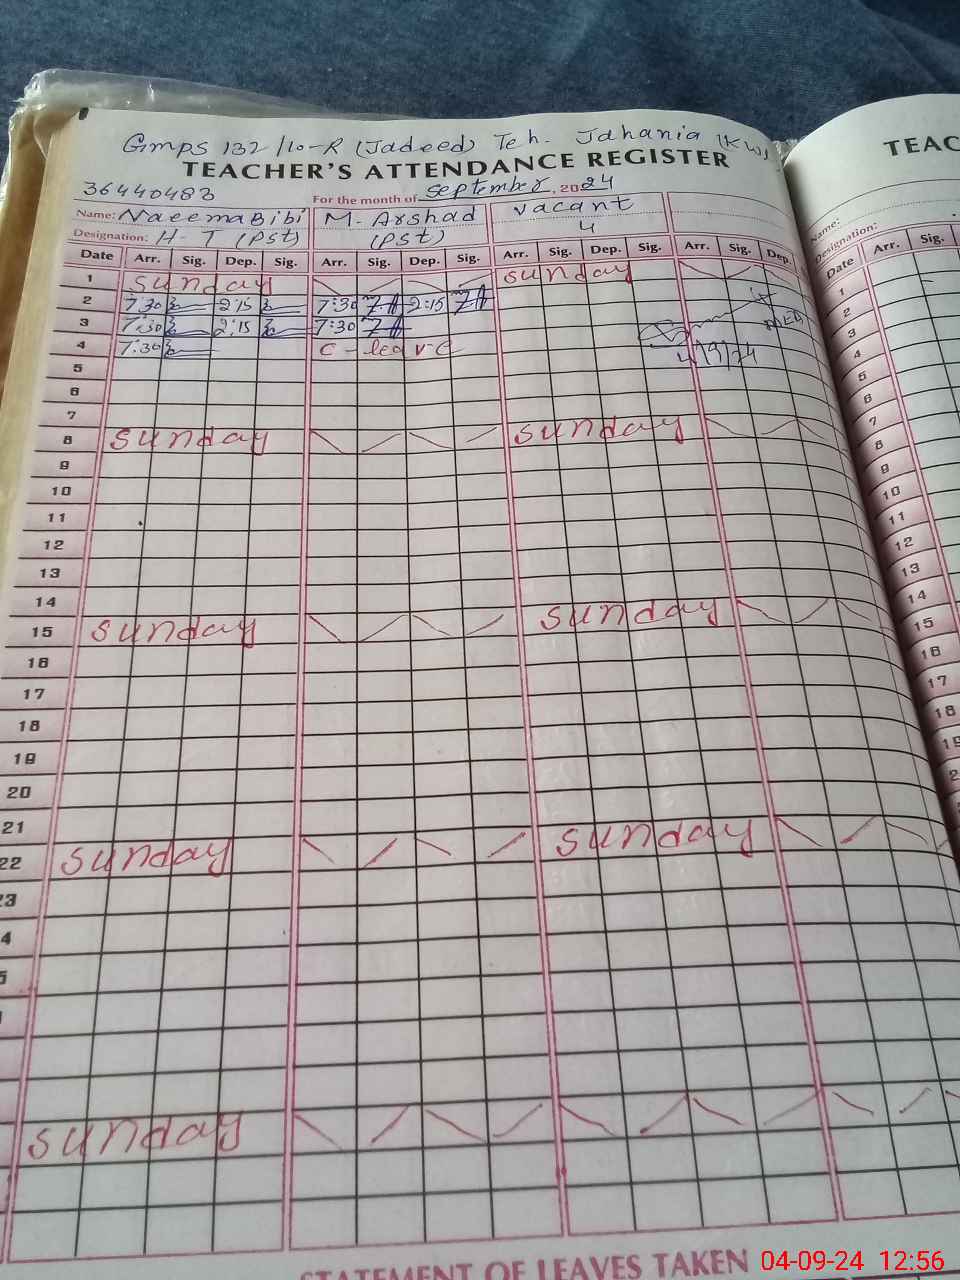 Gmps 132/10-R (Jadeed) Teh. Jahania (KW)
TEACHER'S ATTENDANCE REGISTER
36440483
For the month of September, 2024
Name: Naeema Bibi M. Arshad vacant
Designation: H-T (Pst) (Pst) 4
Date Arr. Sig. Dep. Sig. Arr. Sig. Dep. Sig. Arr. Sig. Dep. Sig. Arr. Sig. Dep.
1 Sunday Sunday
2 7:30 2:15 7:30 2:15
3 7:30 2:15 7:30
4 7:30 4/9/24
5
6
7
8 Sunday Sunday
9
10
11
12
13
14
15 Sunday Sunday
16
17
18
19
20
21
22 Sunday Sunday
23
4
5
Sunday
STATEMENT OF LEAVES TAKEN
TEAC
Name:
Designation:
Date Arr. Sig.
1
2
3
4
5
6
7
8
9
10
11
12
13
14
15
16
17
18
19
04-09-24 12:56